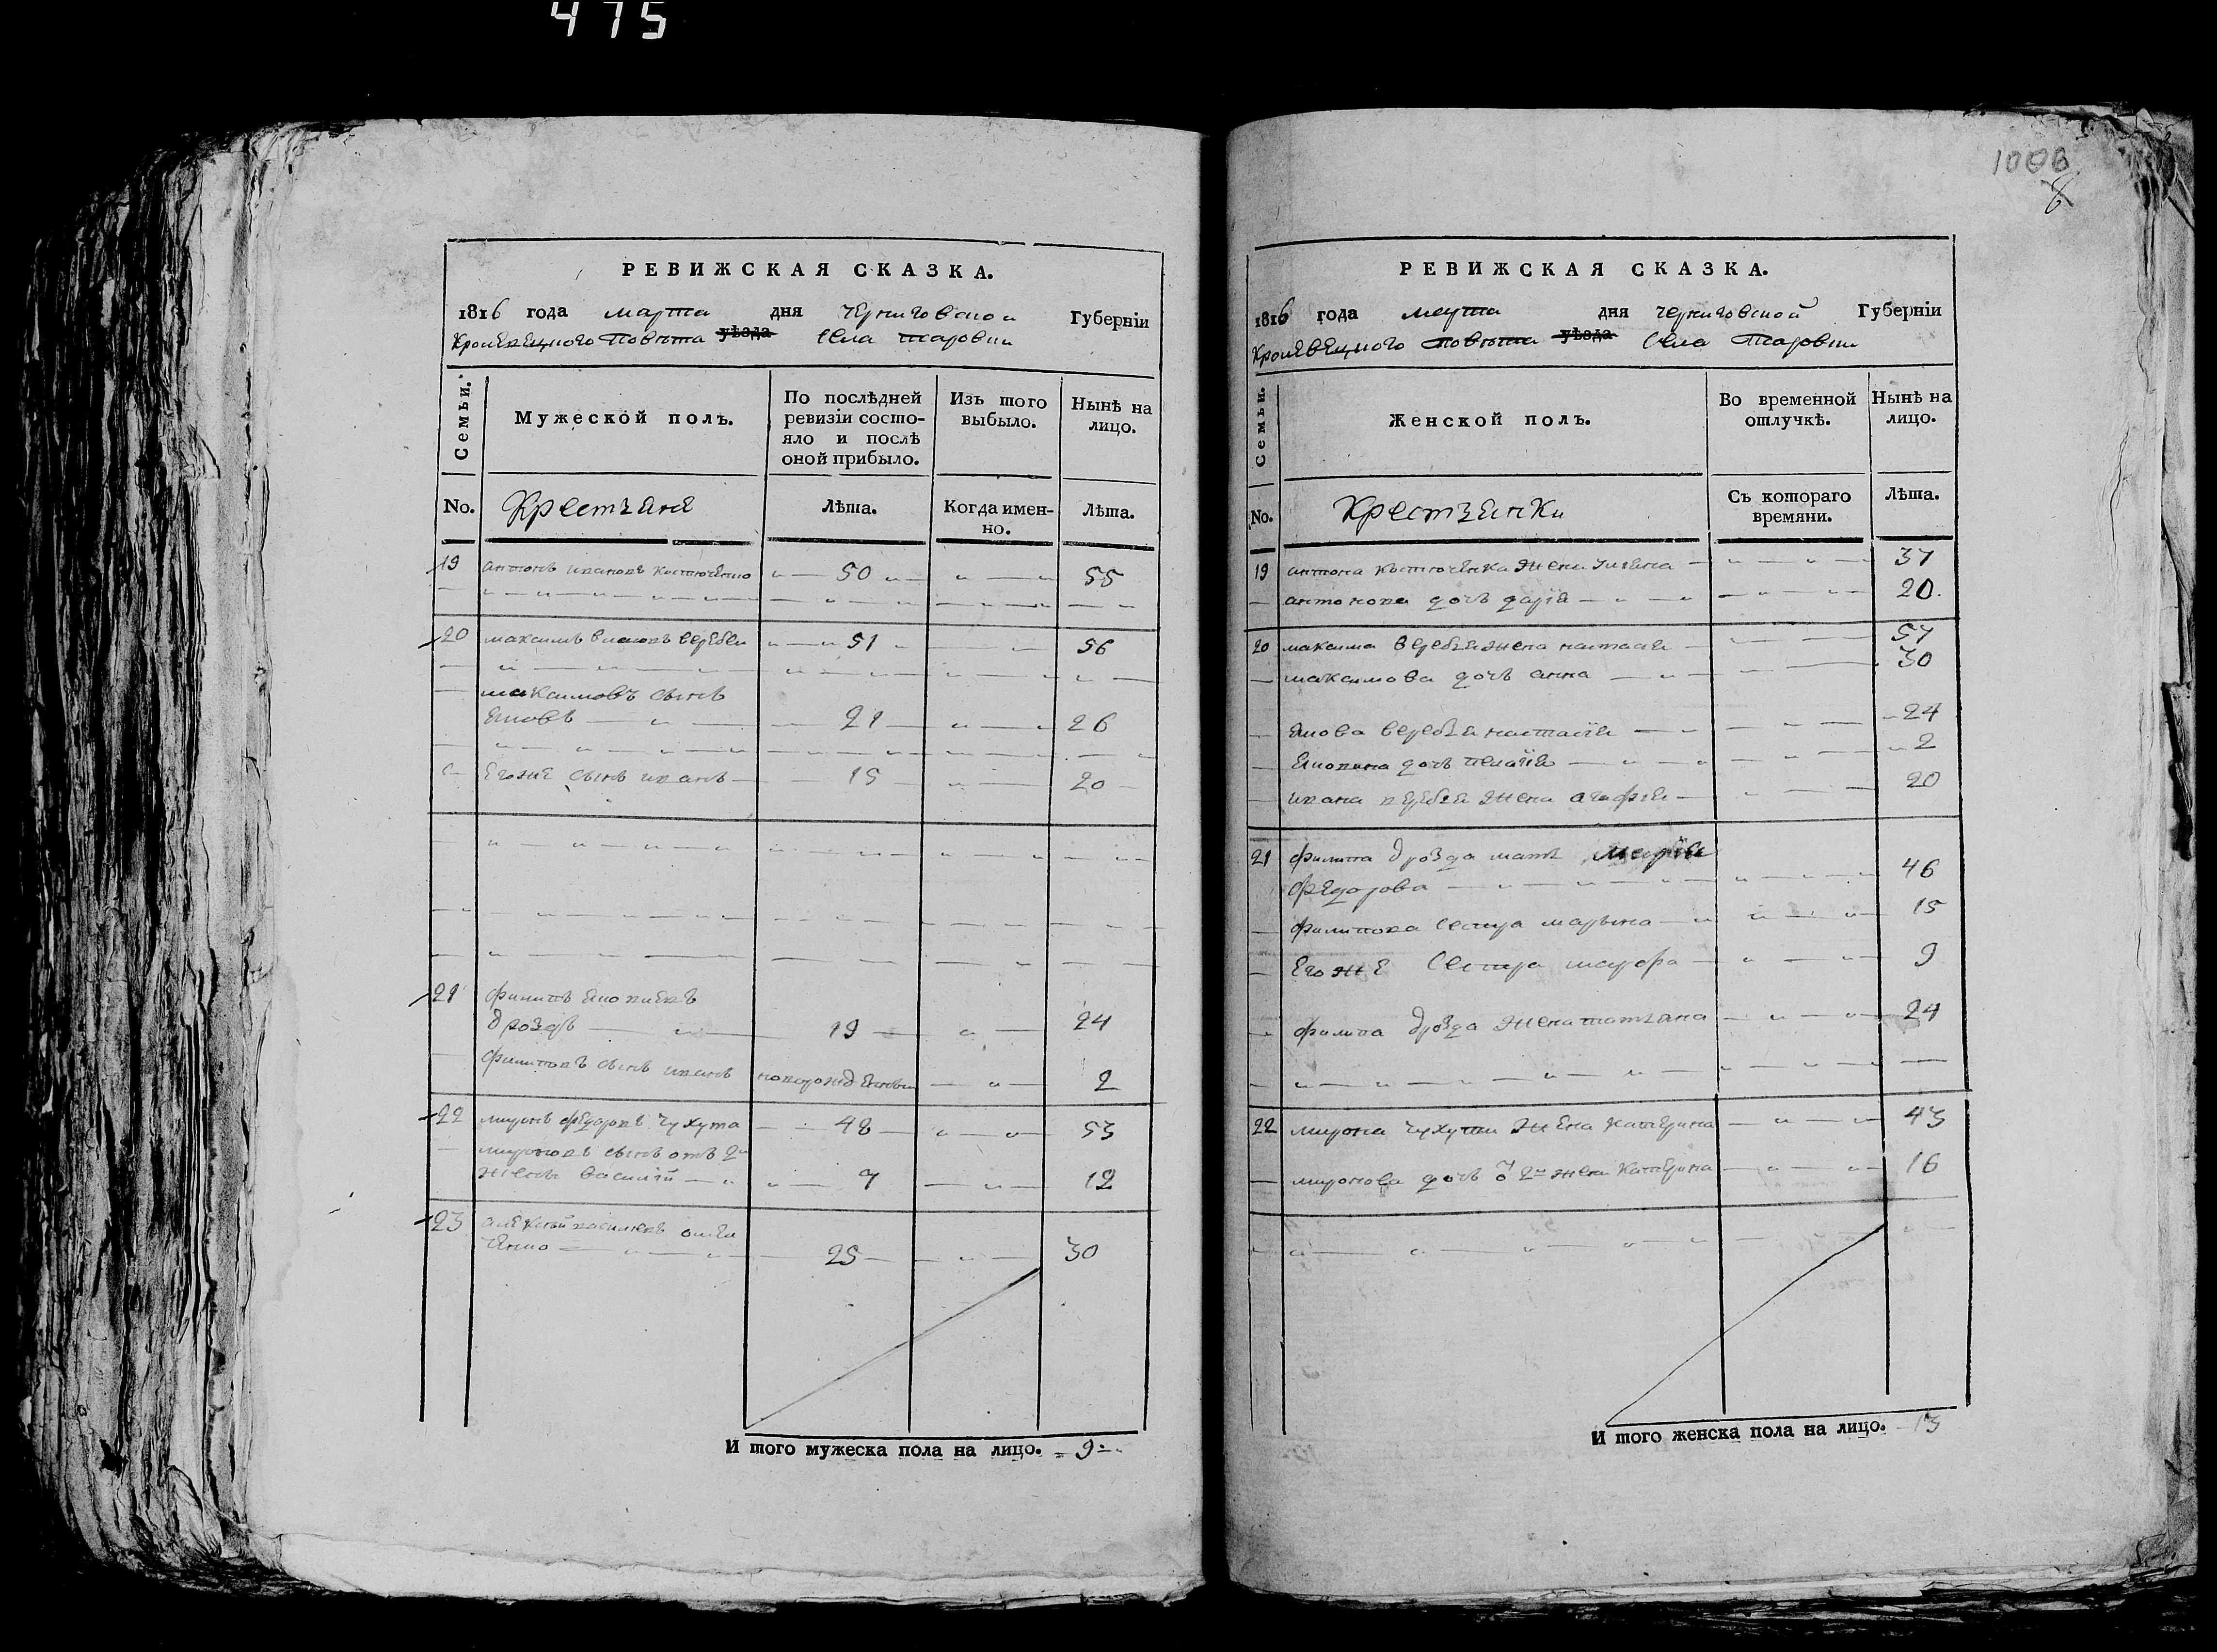 475
РЕВИЖСКАЯ СКАЗКА.
1816 года марта дня Черниговской Губерніи
Кролевецкого Повѣта уѣзда Села
Семьи.
Мужеской полъ.
По послѣдней ревизіи состо-
яло и послѣ
оной прибыло.
Изъ того выбыло.
Нынѣ на лицо.
No. Крестъяне Лѣта. Когда имен-
но. Лѣта.
19 антонъ ивановъ костюченко 50 55
20 максимъ власовъ веребеи 51 56
максимовъ сынъ
яковъ 21 26
Егоже сынъ иванъ 15 20
21 филипъ яковлевъ
дроздъ 19 24
филиповъ сынъ иванъ новорожденны 2
22 миронъ федоровъ чухута 48 53
мироновъ сынъ отъ 2й
жены василій 7 12
23 алексѣй василевъ
25 30
И того мужеска пола на лицо. 9
1006
8
РЕВИЖСКАЯ СКАЗКА.
1816 года марта дня Черниговской Губерніи
Кролевецкого Повѣта уѣзда Села
Семьи.
Женской полъ.
Во временной отлучкѣ.
Нынѣ на лицо.
No. Крестъянки Съ котораго
времяни. Лѣта.
19 антона костюченка жена 37
антонова дочъ дарія 20.
20 максима веребея жена настася 57
максимова дочъ анна 30
якова веребея настасія 24
яковлева дочъ 2
ивана веребея жена агафия 20
21 филипа дрозда мать марія
федорова 46
филипова сестра марына 15
Егоже сестра марфа 9
филипа дрозда жена татьяна 24
22 мирона чухуты жена катерина 43
миронова дочъ о 2й жены катерина 16
И того женска пола на лицо. 13